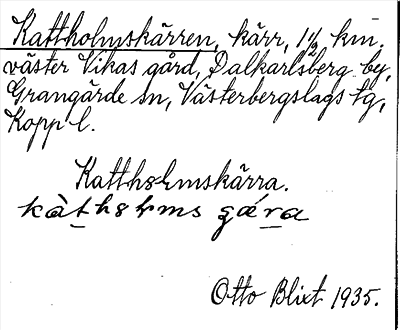 Kattholmskärren, kärr, 1 1/2 km.
väster Vikas gård, Dalkarlsberg by,
Grangärde sn, Västerbergslags tg,
Kopp l.
Katthȣlmskärra.
Otto Blixt 1935.